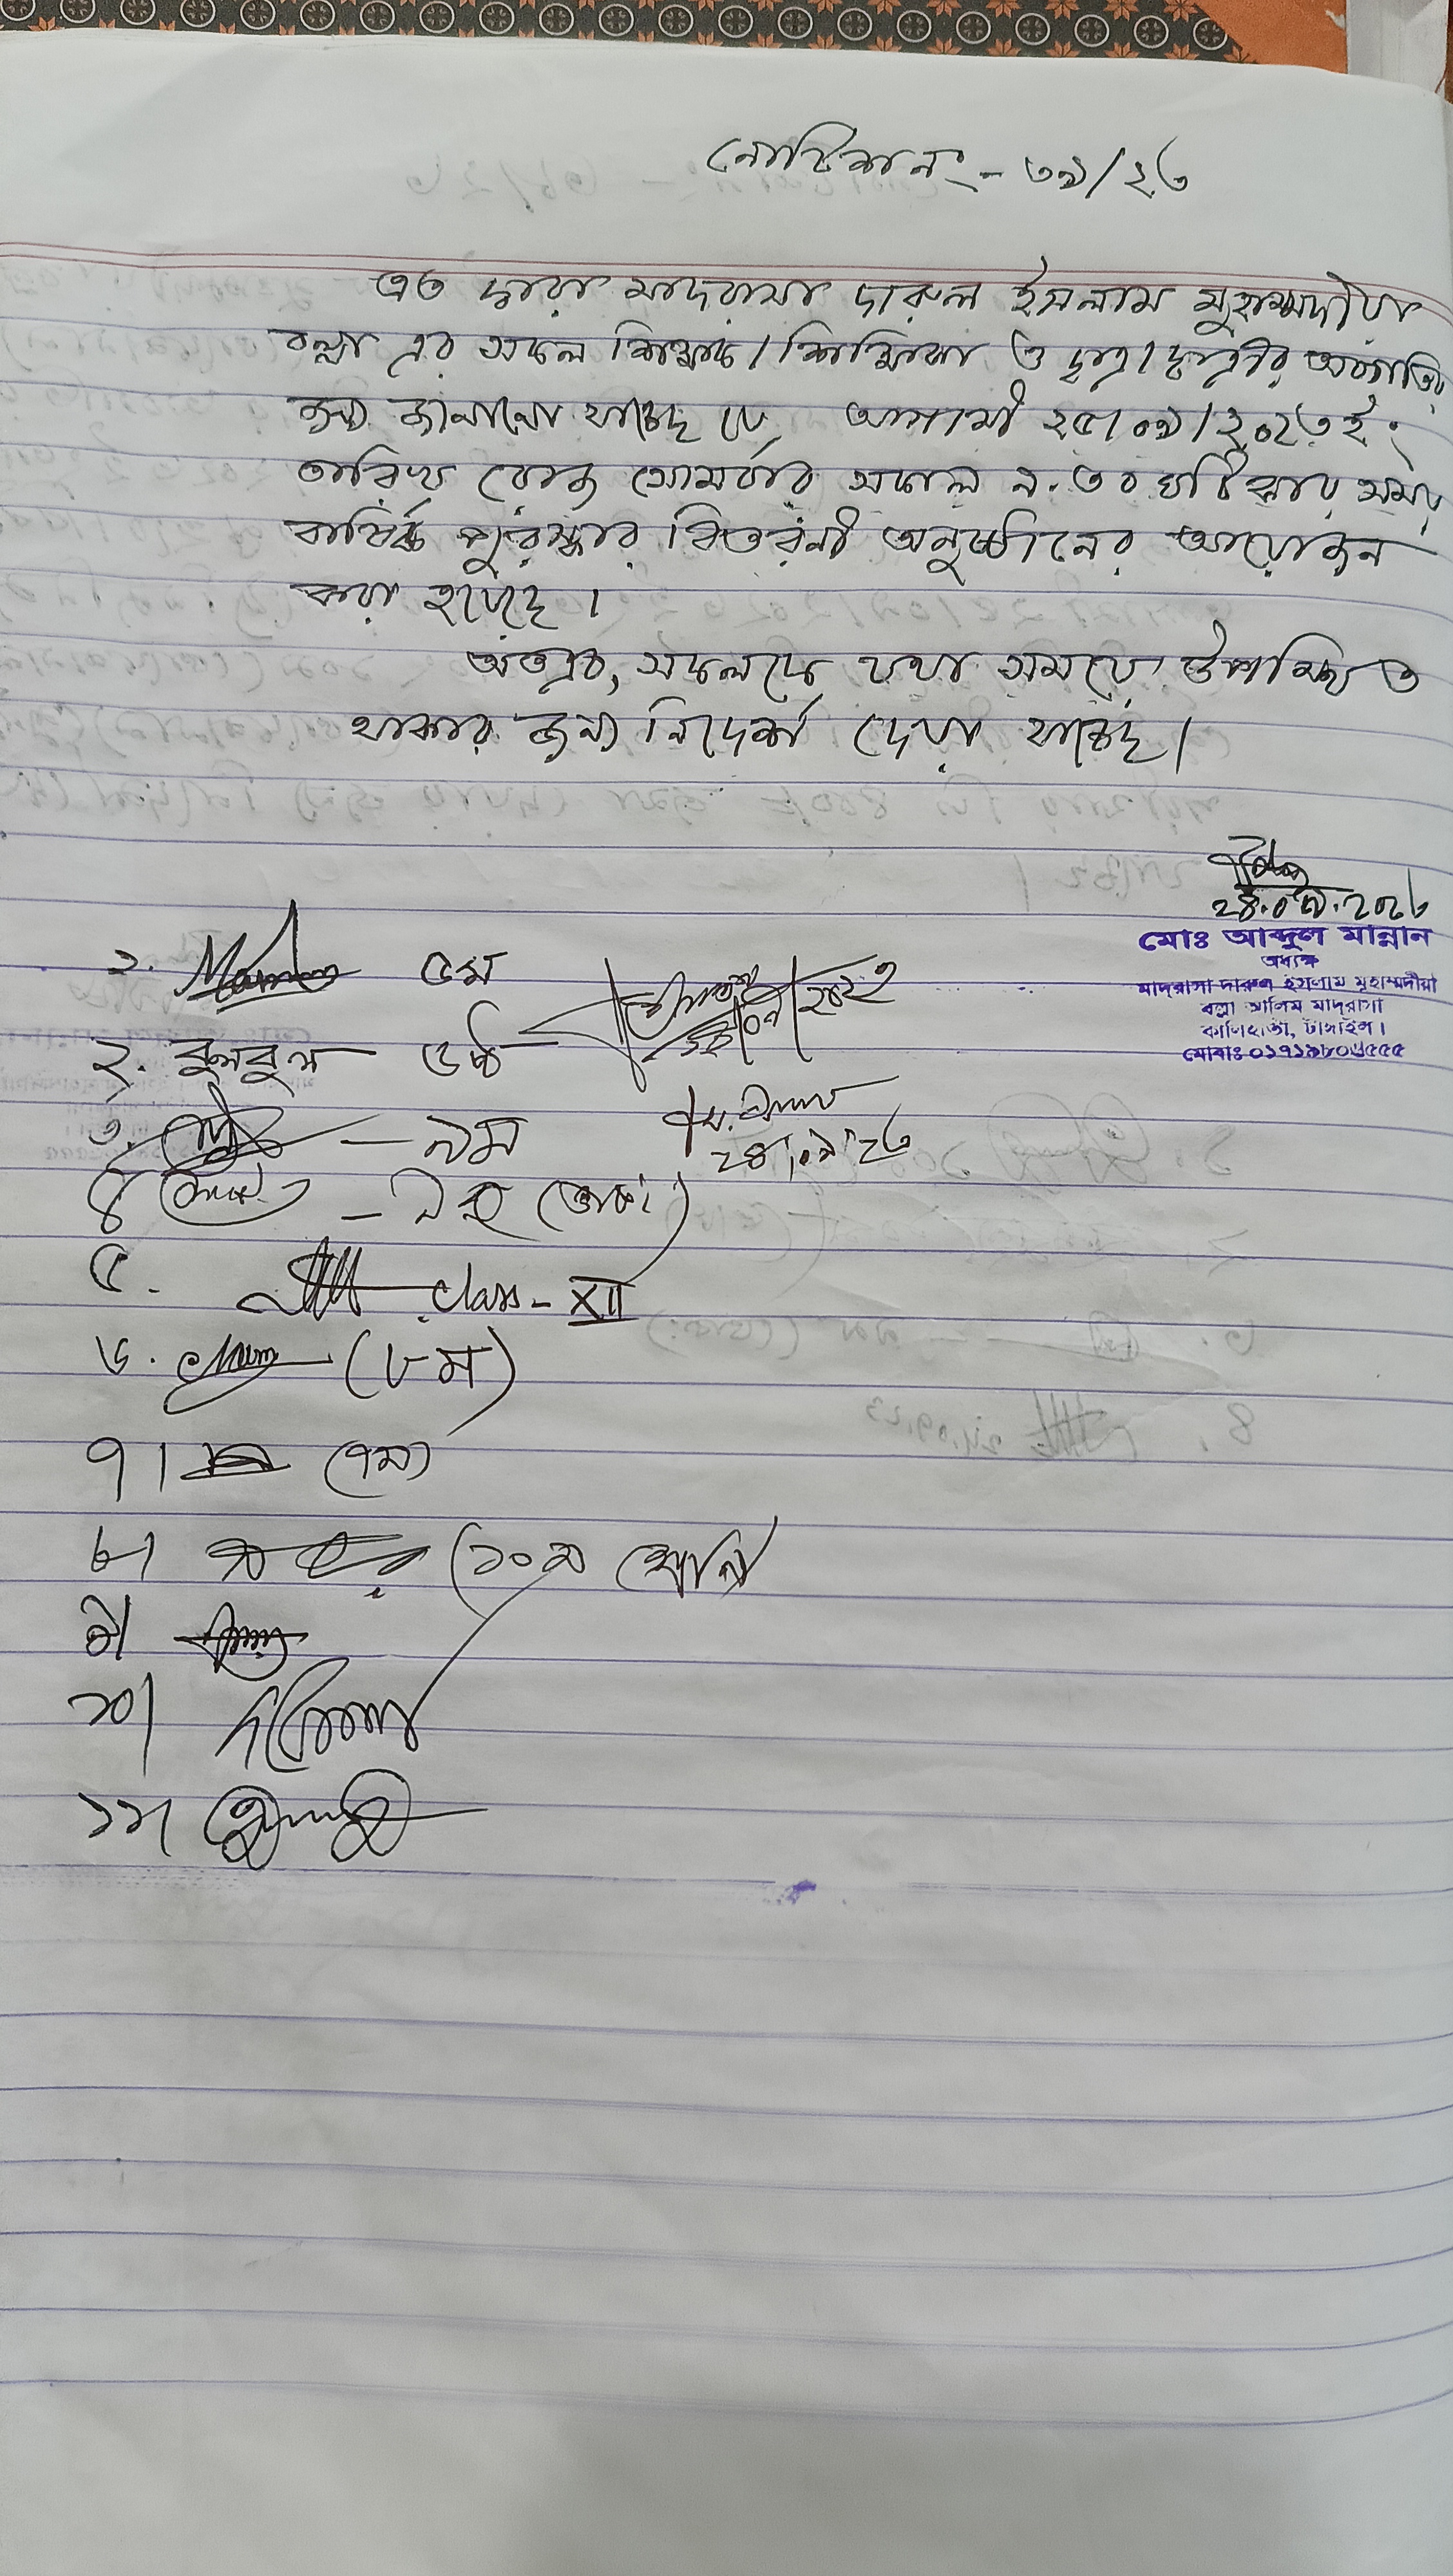 নোটিশ নং - ৩৯/২৩
এত দ্বারা মাদরাসা দারুল ইসলাম মুহাম্মদীয়া
বল্লা এর সকল শিক্ষক/শিক্ষিকা ও ছাত্র/ছাত্রীর অবগতির
জন্য জানানো যাচ্ছে যে, আগামী ২৫/০৯/২০২৩ইং
তারিখ রোজ সোমবার সকাল ৯.৩০ ঘটিকার সময়
বার্ষিক পুরস্কার বিতরনী অনুষ্ঠানের আয়োজন
করা হয়েছে।
অতএব, সকলকে যথা সময়ে উপস্থিত
থাকার জন্য নির্দেশ দেয়া যাচ্ছে।
২৪.০৯.২০২৩
মোঃ আব্দুল মান্নান
অধ্যক্ষ
মাদরাসা দারুল ইসলাম মুহাম্মদীয়া
বল্লা আলিম মাদরাসা
কালিহাতী, টাঙ্গাইল।
১. ৫ম
২. বুলবুল ৬ষ্ঠ
৩. — ৯ম
২৪/০৯/২৩
৪
৫. class - XII
৬. (৮ম)
৭। (৭ম)
৮। (১০ম শ্রেনি
৯।
১০।
১১।